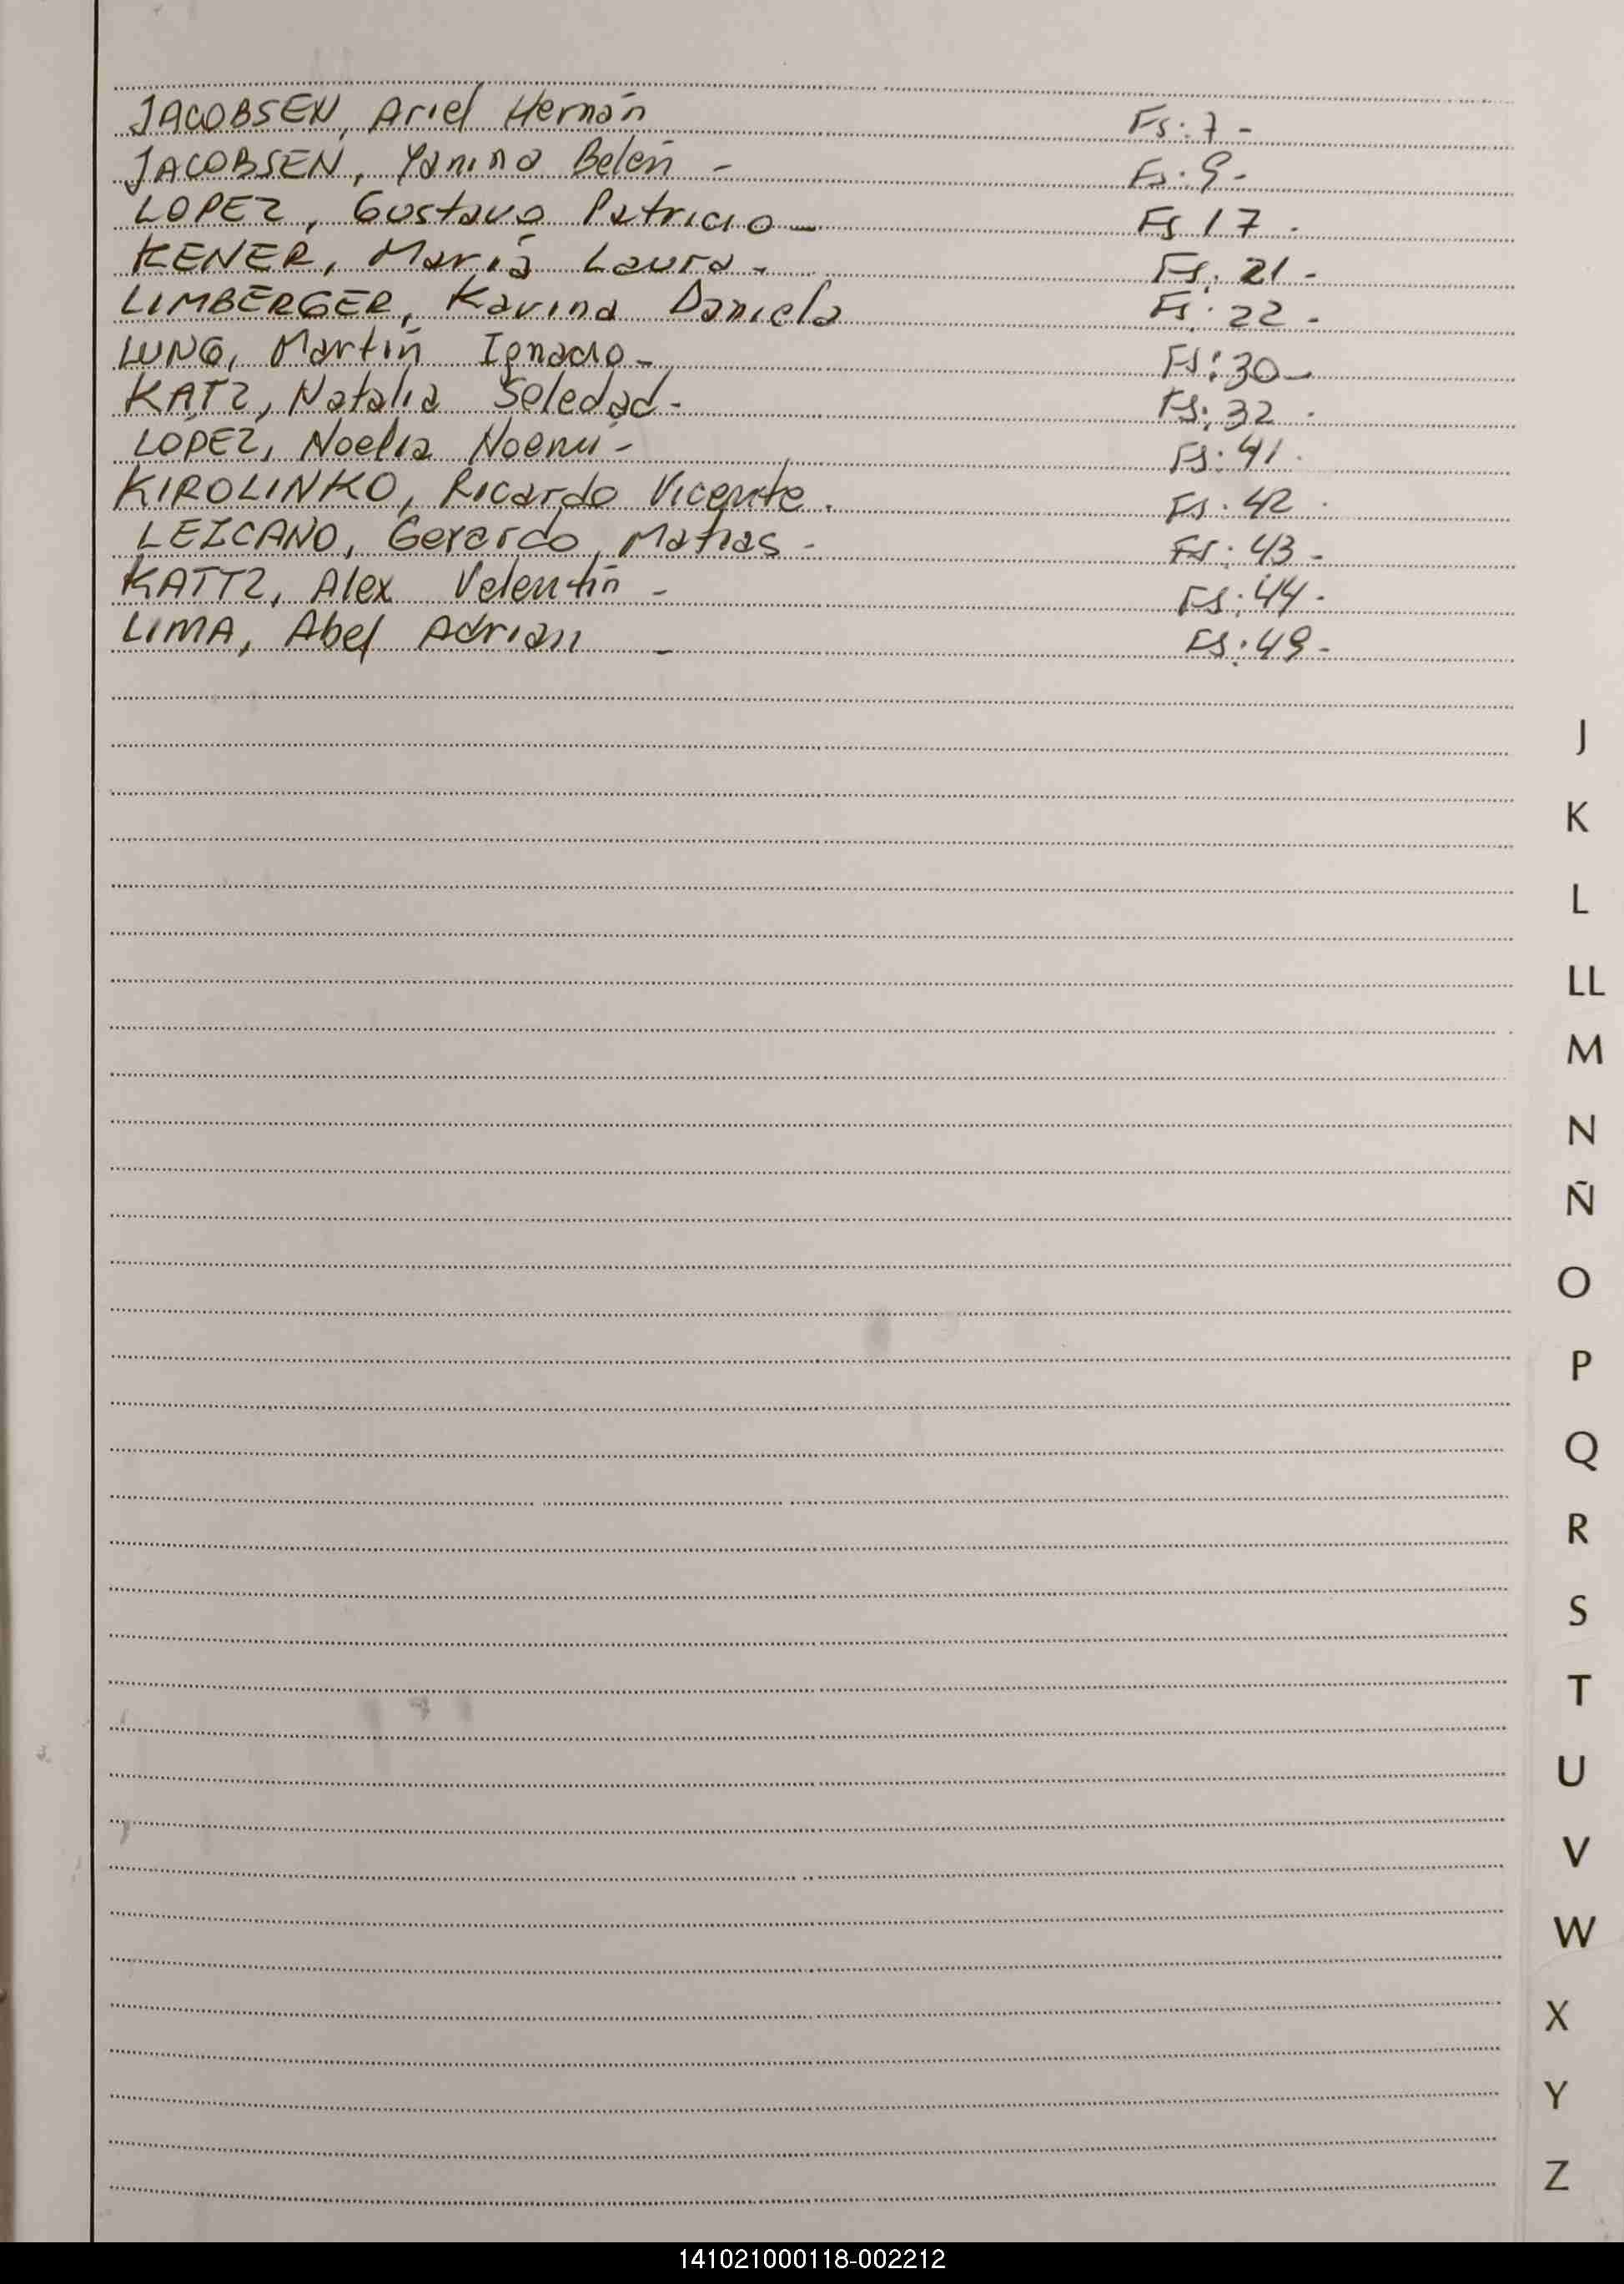 JACOBSEN, Ariel Hernán Fs: 7 -
JACOBSEN, Yanina Belén - Fs: 9 -
LOPEZ, Gustavo Patricio - Fs 17 -
KENER, María Laura - Fs: 21 -
LIMBERGER, Karina Daniela Fs: 22 -
LUNG, Martín Ignacio - Fs: 30 -
KATZ, Natalia Soledad - Fs: 32 -
LOPEZ, Noelia Noemí - Fs: 41 -
KIROLINKO, Ricardo Vicente. Fs: 42 -
LEZCANO, Gerardo Matías - Fs: 43 -
KATTZ, Alex Valentín - Fs: 44 -
LIMA, Abel Adrian - Fs: 49 -
J
K
L
LL
M
N
Ñ
O
P
Q
R
S
T
U
V
W
X
Y
Z
141021000118-002212